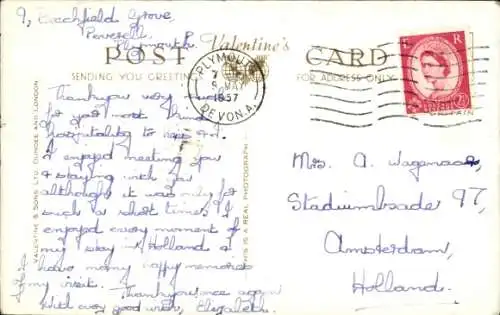 9, Beechfield Grove,
Peverell,
Plymouth.
POST Valentine's CARD
SENDING YOU GREETING FOR ADDRESS ONLY
PLYMOUTH
9 MAY
1957
DEVON.A.
E R
Thank you very much
for your most kind
hospitality to me.
I enjoyed meeting you
& staying with you
although it was only for
such a short time. I
enjoyed every moment of
my stay in Holland &
have many happy memories
of my visit.
Thank you once again
With every good wish, Elizabeth.
Mrs A. Wagenaar,
Stadiumkade 97,
Amsterdam,
Holland.
VALENTINE & SONS LTD. DUNDEE AND LONDON
THIS IS A REAL PHOTOGRAPH